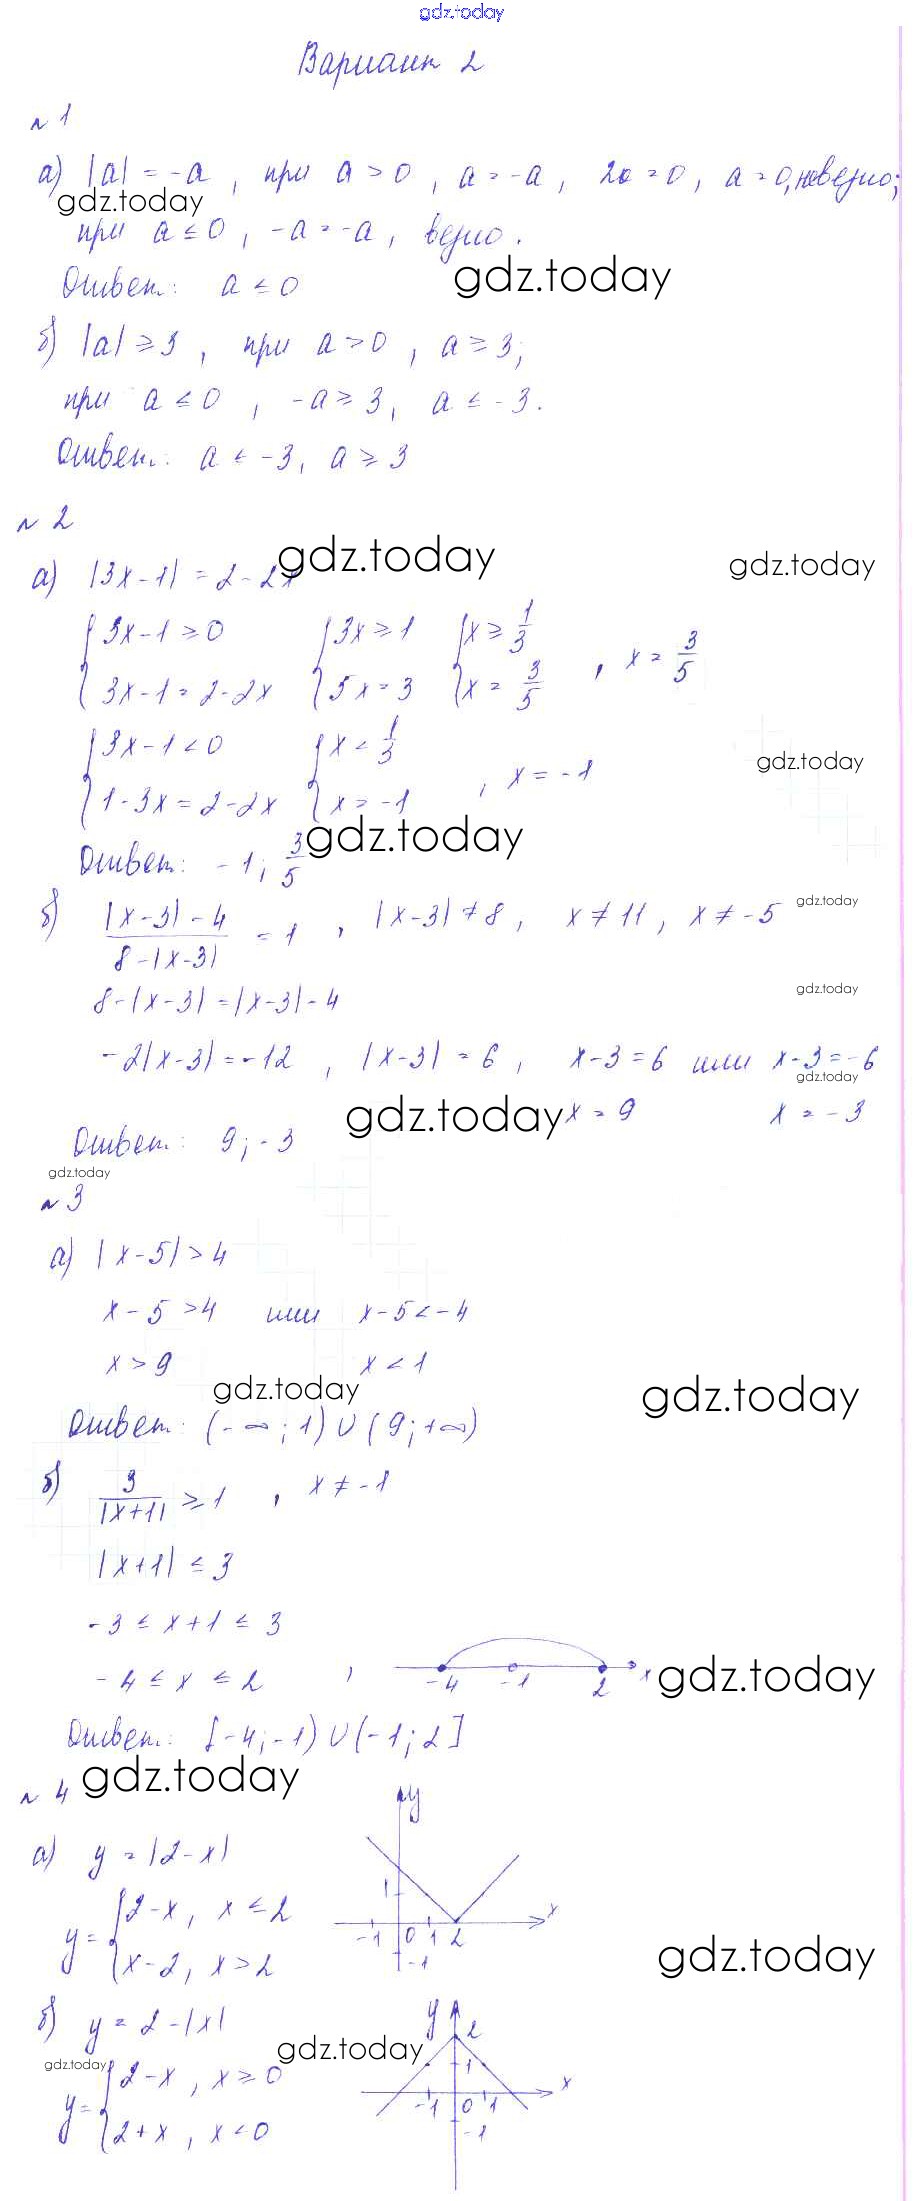 gdz.today
Вариант 2
№ 1
а) |a| = -a , при a > 0 , a = -a , 2a = 0 , a = 0, неверно;
gdz.today
при a ≤ 0 , -a = -a , верно .
gdz.today
Ответ: a ≤ 0
б) |a| ≥ 3 , при a > 0 , a ≥ 3;
при a ≤ 0 , -a ≥ 3, a ≤ -3.
Ответ: a ≤ -3, a ≥ 3
№ 2
gdz.today gdz.today
а) |3x-1| = 2-2x
{3x-1 ≥ 0 {3x ≥ 1 {x ≥ 1/3
{3x-1 = 2-2x {5x = 3 {x = 3/5 , x = 3/5
{3x-1 < 0 {x < 1/3
gdz.today
{1-3x = 2-2x {x = -1 , x = -1
gdz.today
Ответ: -1; 3/5
б) (|x-3|-4)/(8-|x-3|) = 1 , |x-3| ≠ 8 , x ≠ 11 , x ≠ -5
gdz.today
8-|x-3| = |x-3|-4
gdz.today
-2|x-3| = -12 , |x-3| = 6 , x-3 = 6 или x-3 = -6
gdz.today
gdz.today x = 9 x = -3
Ответ: 9; -3
gdz.today
№ 3
а) |x-5| > 4
x-5 > 4 или x-5 < -4
x > 9 x < 1
gdz.today gdz.today
Ответ: (-∞; 1) ∪ (9; +∞)
б) 3/|x+1| ≥ 1 , x ≠ -1
|x+1| ≤ 3
-3 ≤ x+1 ≤ 3
-4 ≤ x ≤ 2 , -4 -1 2 x
gdz.today
Ответ: [-4; -1) ∪ (-1; 2]
gdz.today
№ 4
y
а) y = |2-x|
y = {2-x , x ≤ 2
{x-2 , x > 2
1 x
-1 0 1 2
-1
gdz.today
б) y = 2-|x|
y 2
gdz.today gdz.today
y = {2-x , x ≥ 0
{2+x , x < 0
1 x
-1 0 1
-1